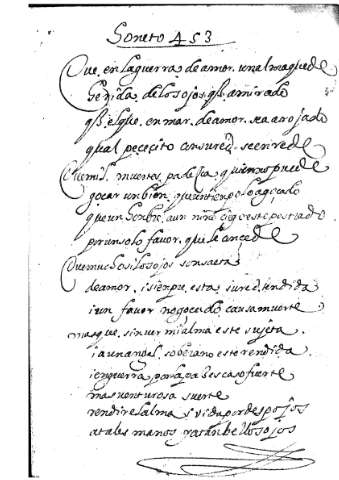 Soneto 453
Que. en la guerra. de amor. un alma quede
herida. de los ojos. q̃. a mirado
q̃. el que. en mar. de amor. sea arojado
qual pececito con su red. se enrede
Que mil. muertes. padesca quien no puede
gocar un bien. que un tienpo lo a gocado
que un honbre. aun niño ciego este postrado
por un solo favor. que le concede
Que mucho si los ojos son saeta
de amor. i sienpre. esta su red. tendida
i un favor no gocado. causa muerte
mas que. sin ver mi alma este sujeta
i a un angel. soberano este rendida.
i en guerra. por la paz es caso fuerte
mas venturosa suerte
rendire el alma si vida por despojos
a tales manos ya tan bellos ojos